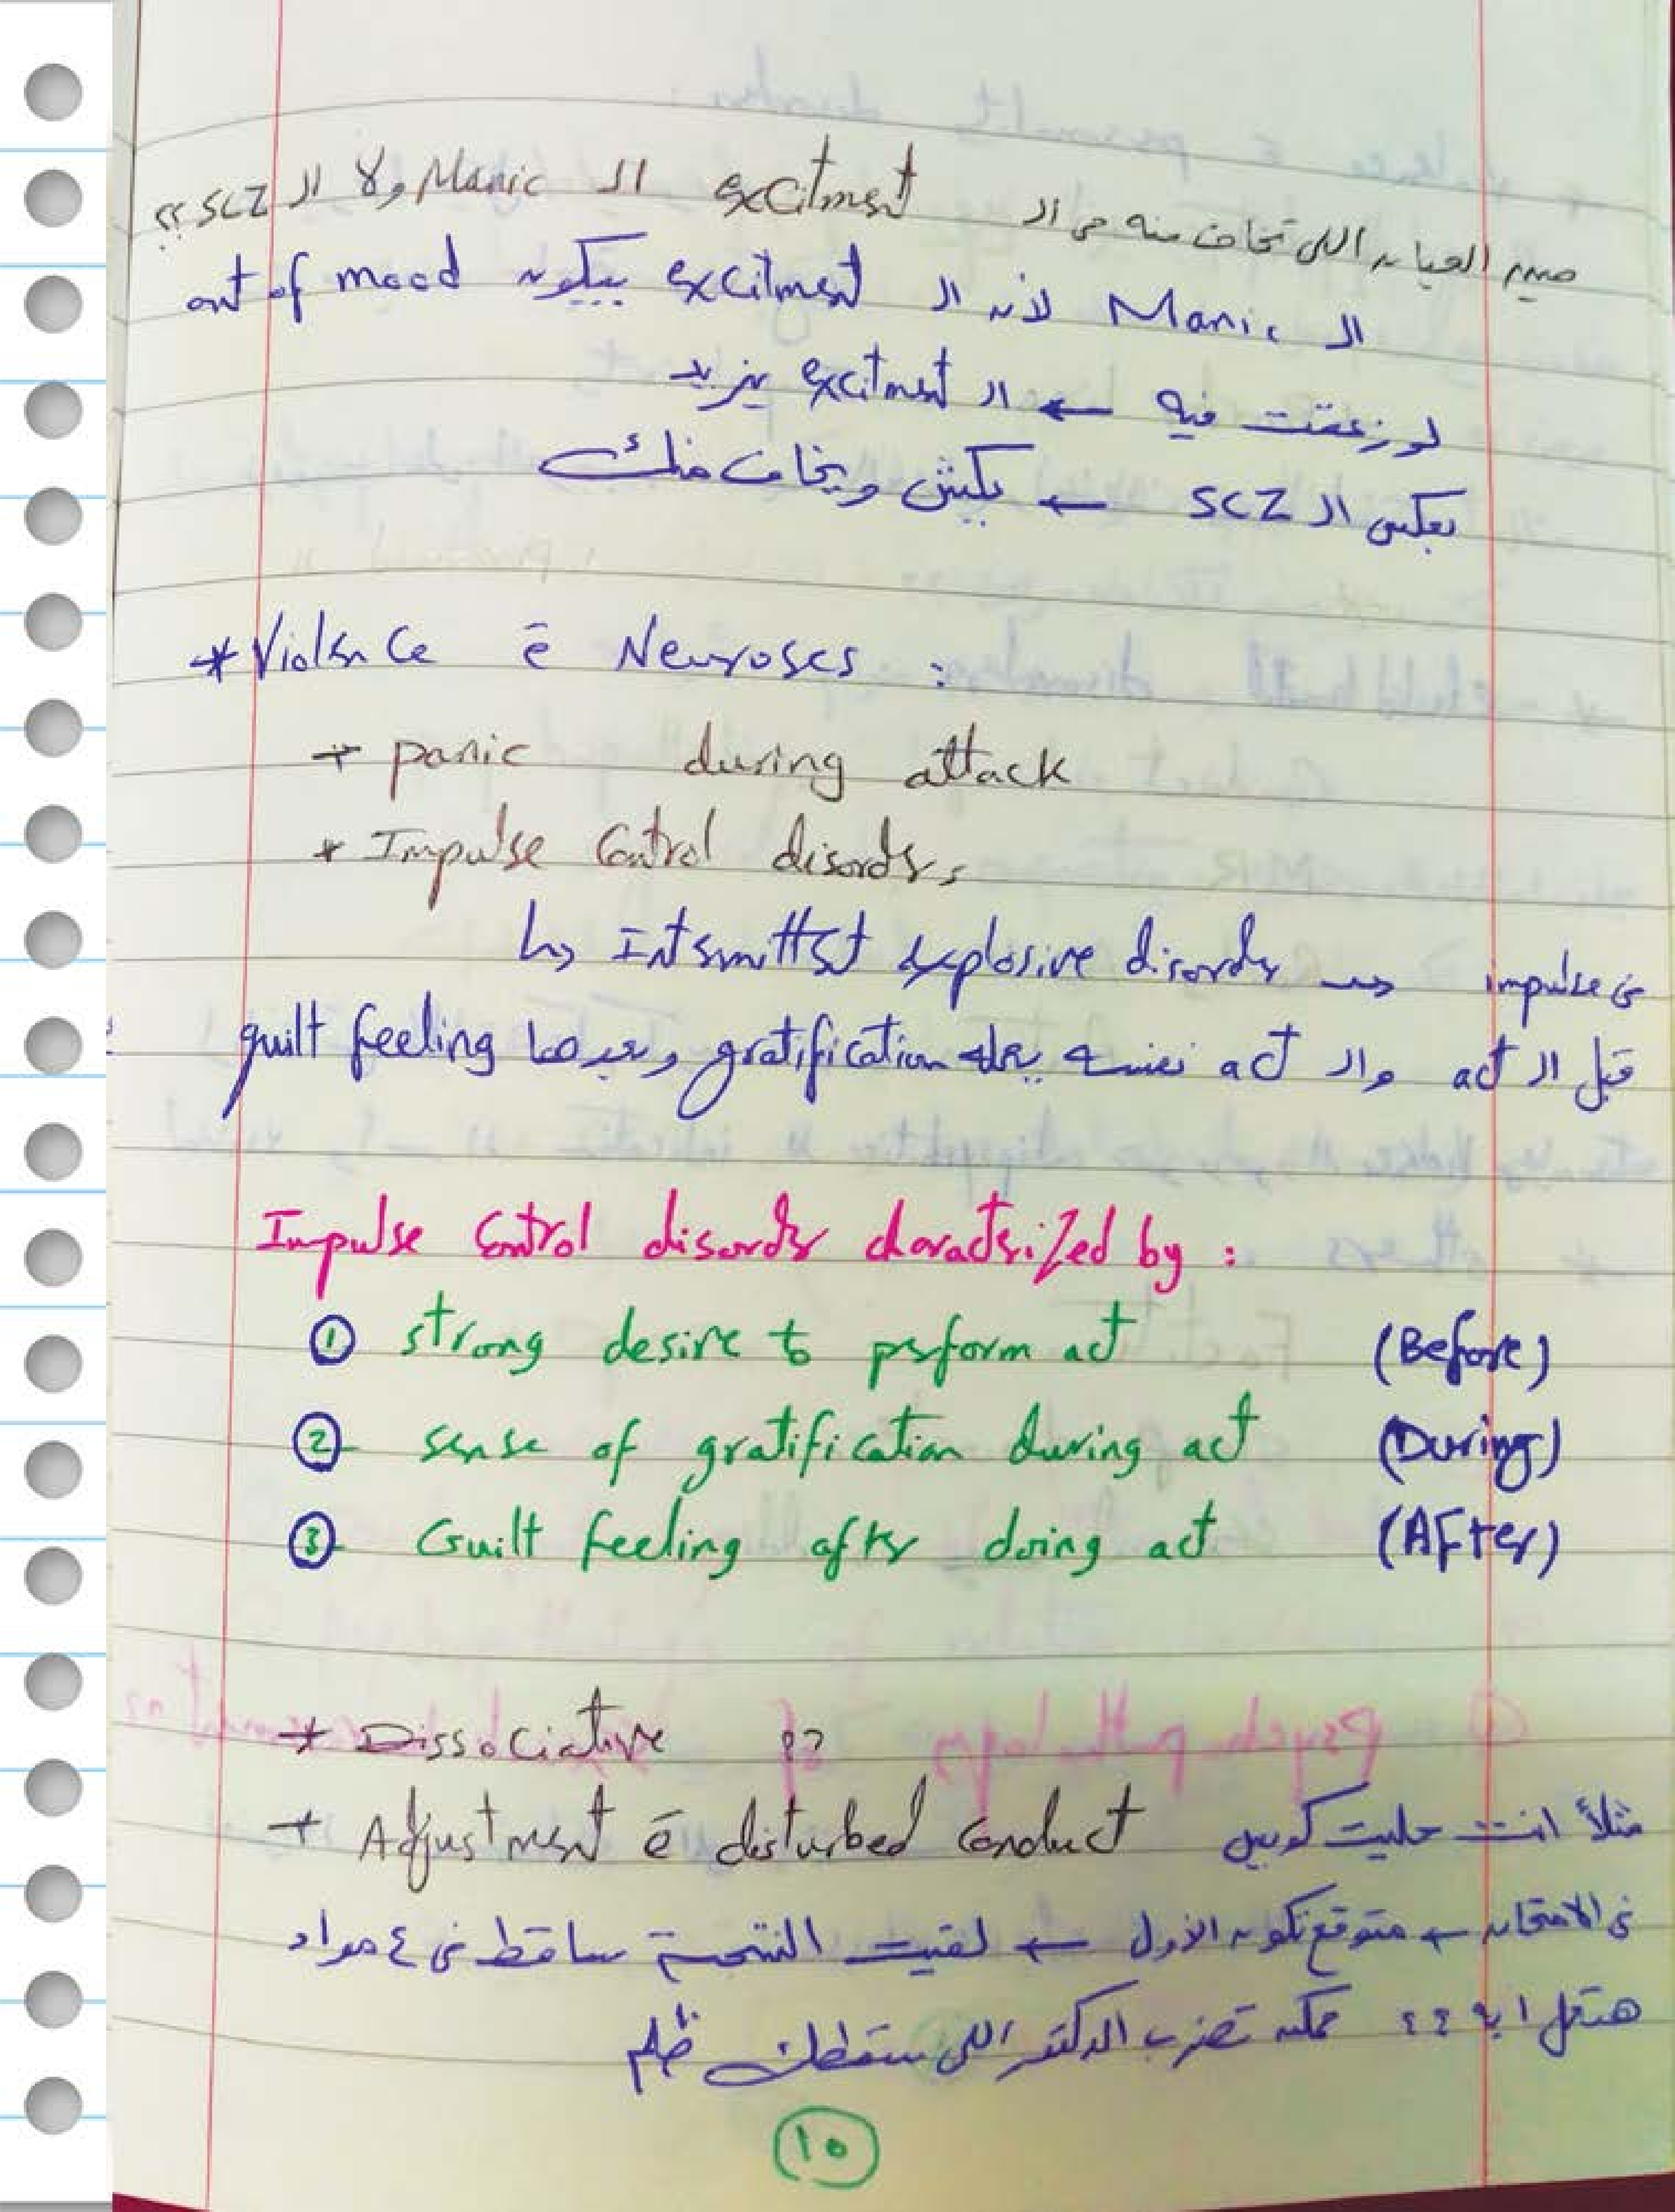 مين العيان اللي تخاف منه من ال excitment ال Manic ولا ال SCZ ؟؟
ال Manic لأن ال excitment بيكون out of mood
لو زعقت فيه ← ال excitment يزيد
بعكس ال SCZ ← يكش ويخاف منك
* Violence ē Neuroses :
* panic during attack
* Impulse Control disorders
↳ Intermittent explosive disorder → impulse في
قبل ال act وال act نفسه يعمله gratification وبعدها guilt feeling
Impulse Control disorder charactrized by :
① strong desire to perform act (Before)
② sense of gratification during act (During)
③ Guilt feeling after doing act (AFter)
* Dissociative ??
* Adjustment ē disturbed conduct مثلاً انت حليت كويس
في الامتحان ← متوقع تكون الأول ← لقيت النتيجة ساقط في ٤ مواد
هتعمل ايه ؟؟ ممكن تضرب الدكتور اللي سقطك ظلم
١٥